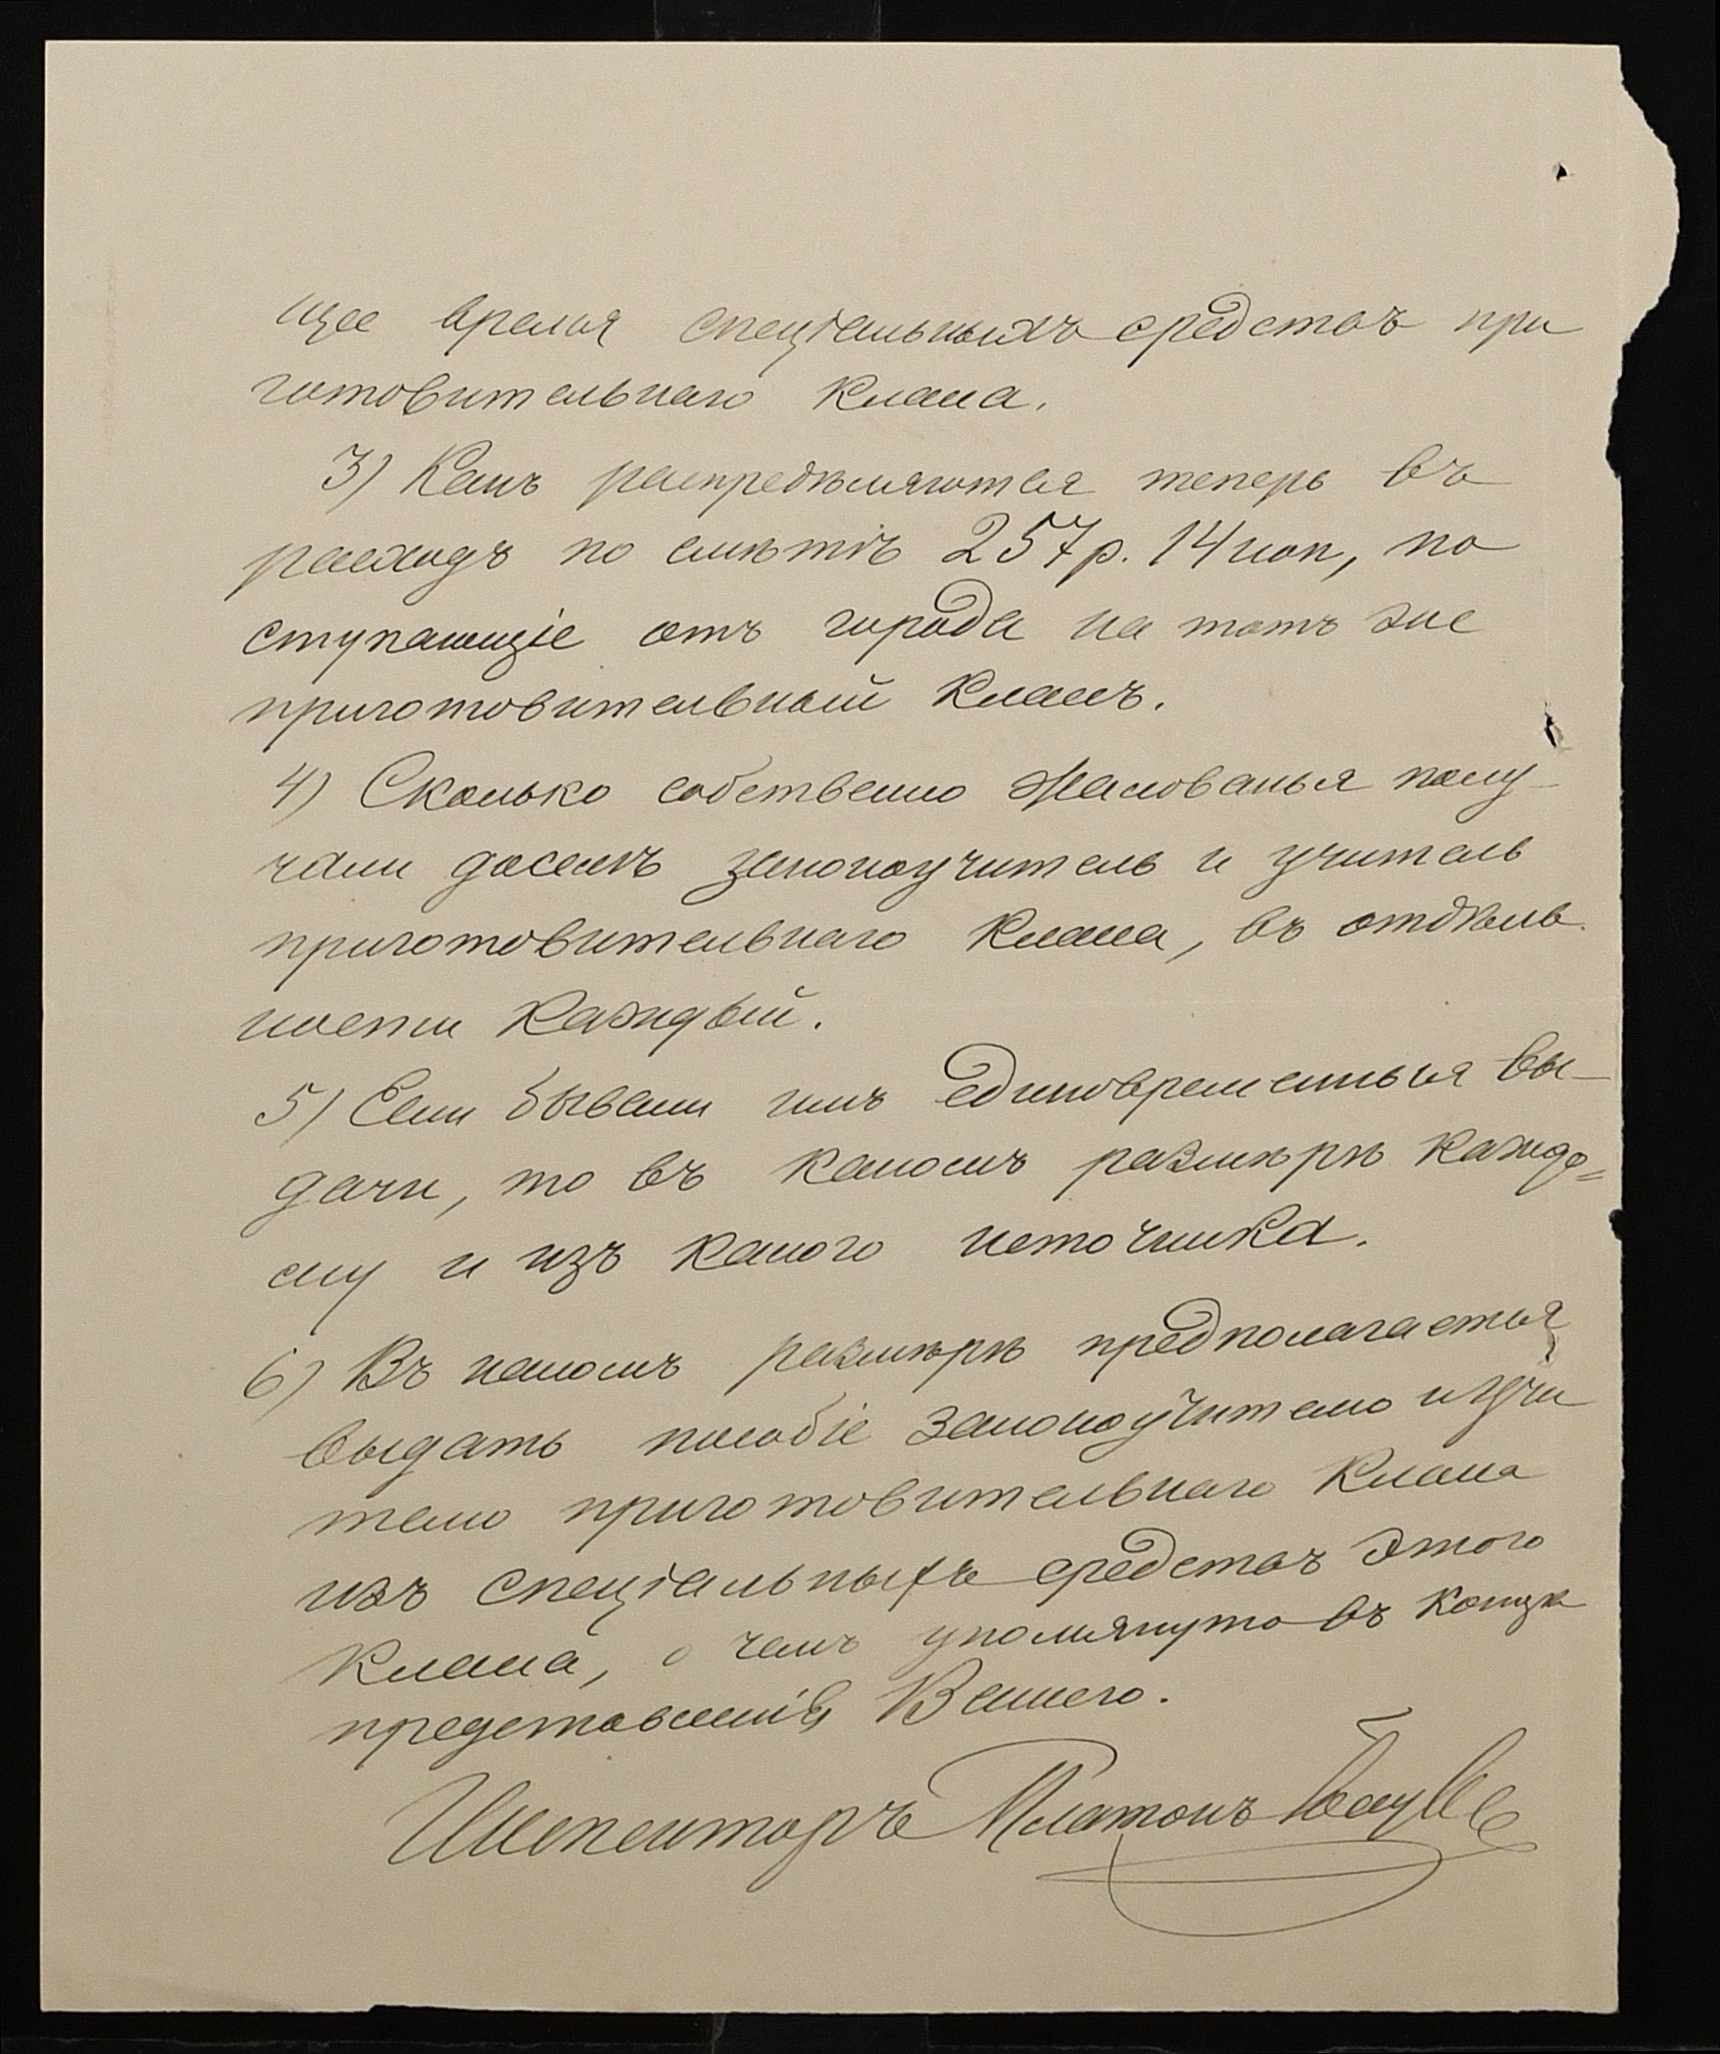 щее время спеціальныхъ средствъ при
готовительнаго класса.
3) Какъ распредѣляются теперь въ
расходъ по смѣтѣ 257 р. 14 коп, по
ступающіе отъ города на тотъ же
приготовительный классъ.
4) Сколько собственно жалованья полу-
чали доселѣ законоучитель и учитель
приготовительнаго класса, въ отдѣль-
ности каждый.
5) Если бывали имъ единовременныя вы-
дачи, то въ какомъ размѣрѣ каждо=
му и изъ какого источника.
6) Въ какомъ размѣрѣ предполагается
выдать пособіе законоучителю и учи
телю приготовительнаго класса
изъ спеціальныхъ средствъ этого
класса, о чемъ упомянуто въ концѣ
представленія Вашего.
Инспекторъ Платонъ